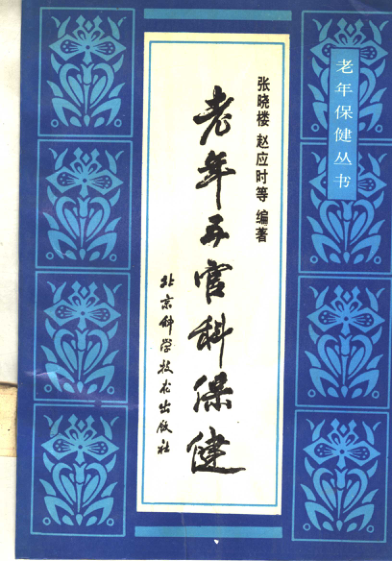 老年保健丛书
张晓楼 赵应时等 编著
老年五官科保健
北京科学技术出版社